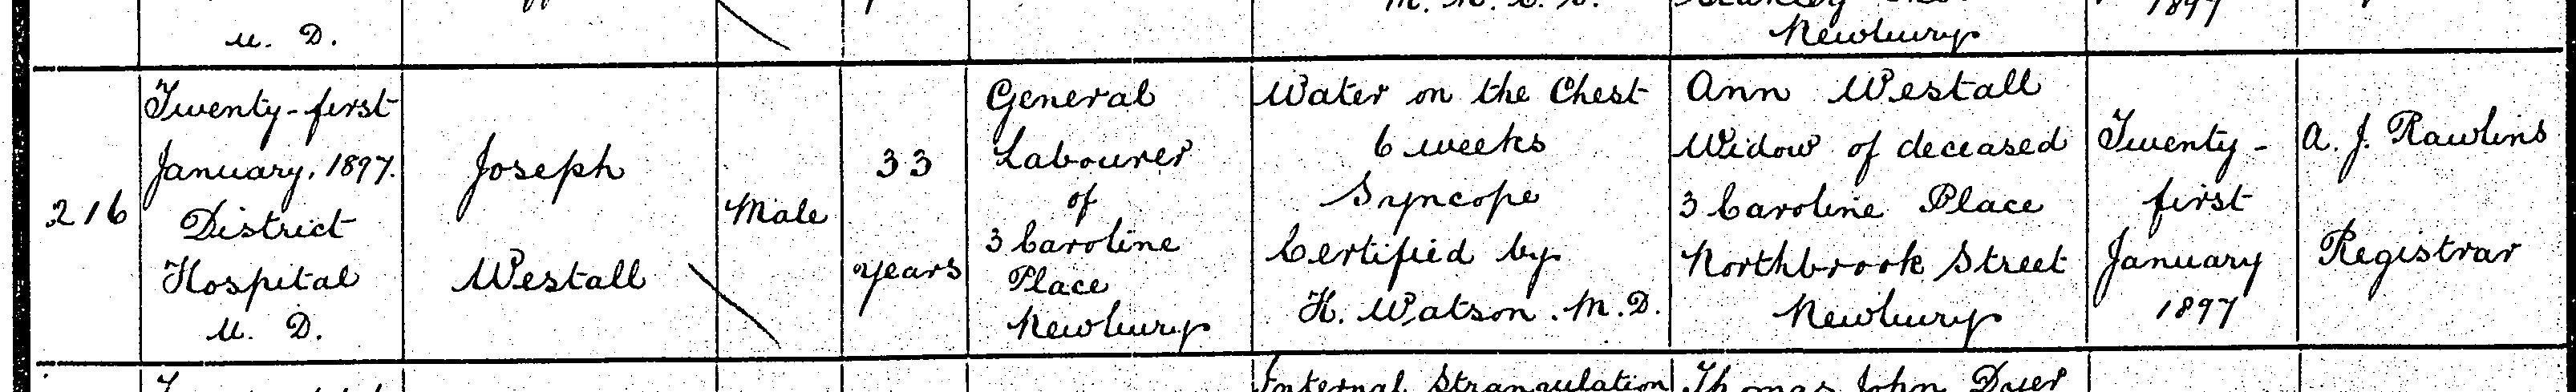 1897
U. D.
Newbury
216
Twenty-first
January, 1897.
District
Hospital
U. D.
Joseph
Westall
Male
33
years
General
Labourer
of
3 Caroline
Place
Newbury
Water on the Chest
6 weeks
Syncope
Certified by
H. Watson. M.D.
Ann Westall
Widow of deceased
3 Caroline Place
Northbrook Street
Newbury
Twenty-
first
January
1897
A. J. Rawlins
Registrar
Internal Strangulation
Thomas John Dyer